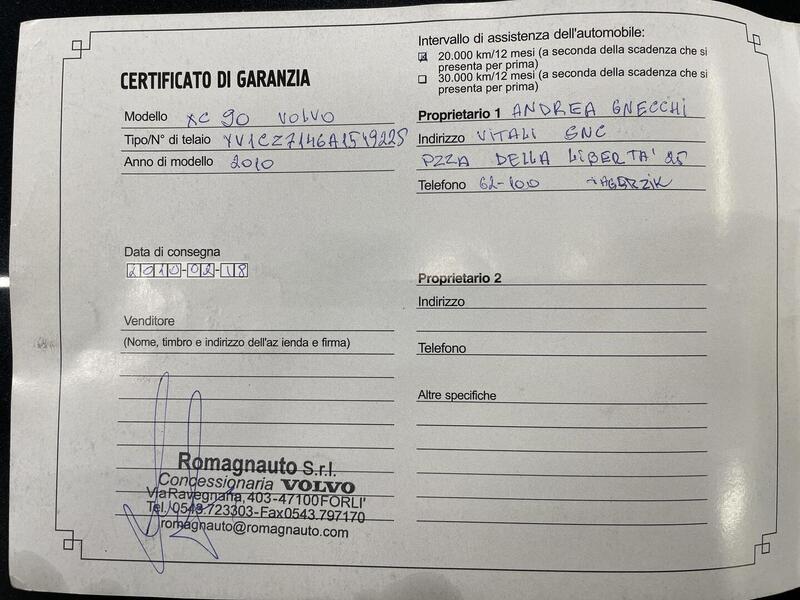 CERTIFICATO DI GARANZIA
Modello XC 90 VOLVO
Tipo/N° di telaio YV1CZ7146A1549225
Anno di modello 2010
Data di consegna
2010-02-18
Venditore
(Nome, timbro e indirizzo dell'az ienda e firma)
Romagnauto S.r.l.
Concessionaria VOLVO
Via Ravegnana, 403-47100 FORLI'
Tel. 0543.723303-Fax 0543.797170
romagnauto@romagnauto.com
Intervallo di assistenza dell'automobile:
20.000 km/12 mesi (a seconda della scadenza che si
presenta per prima)
30.000 km/12 mesi (a seconda della scadenza che si
presenta per prima)
Proprietario 1 ANDREA GNECCHI
Indirizzo VITALI SNC
PZZA DELLA LIBERTA' 25
Telefono 62-100
Proprietario 2
Indirizzo
Telefono
Altre specifiche